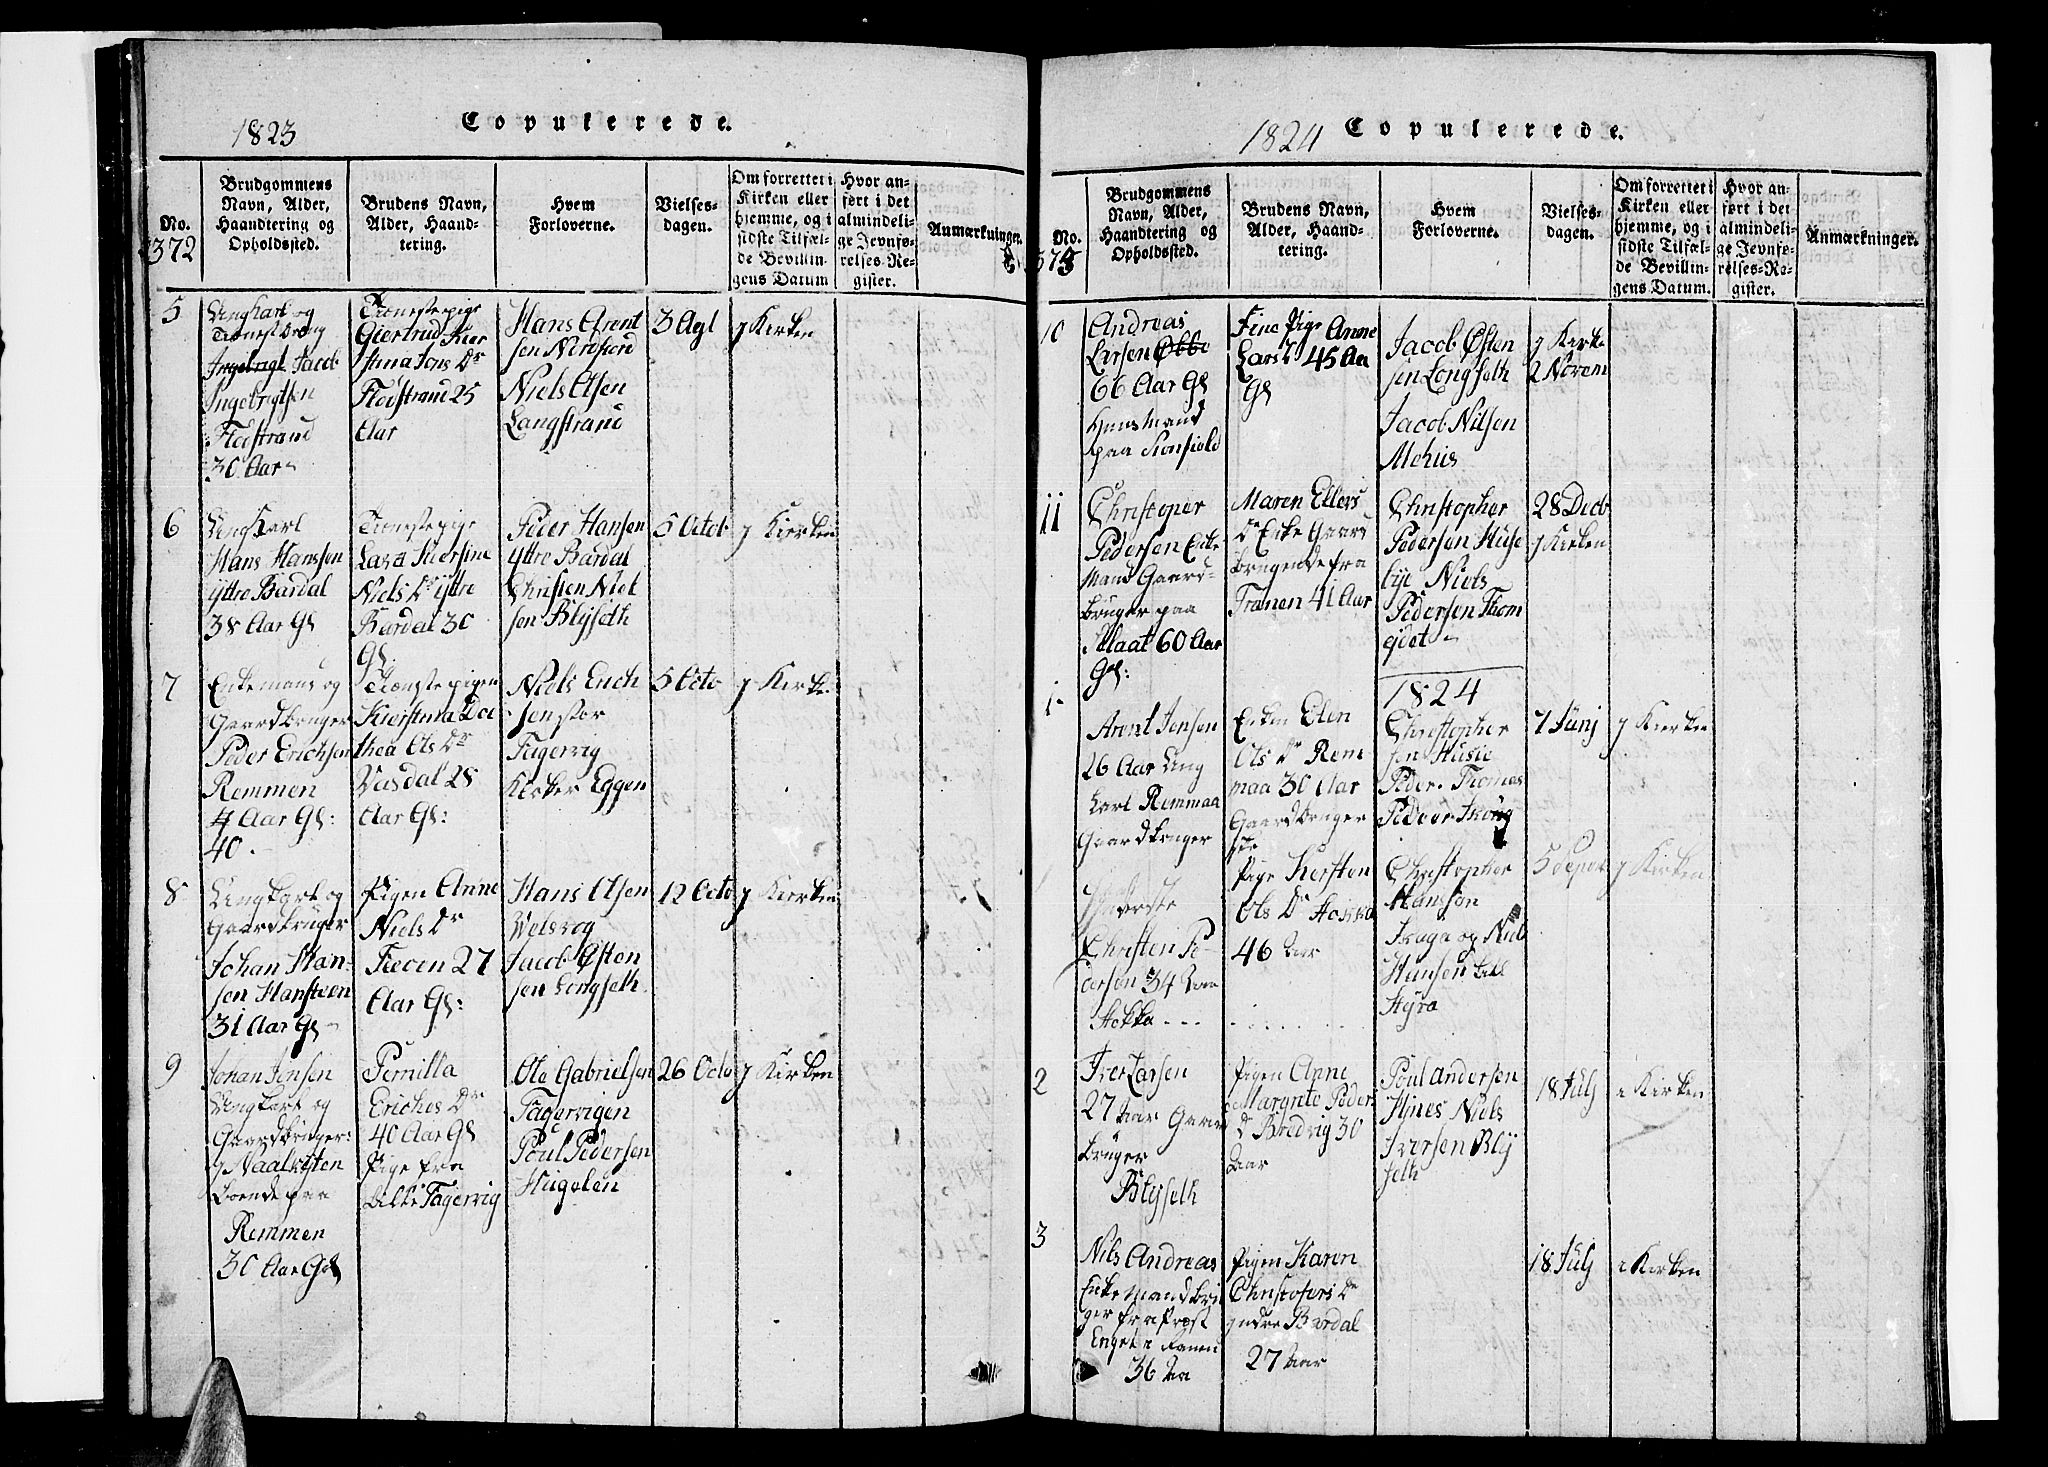 1823
Copulerede.
No.
372
Brudgommens
Navn, Alder,
Haandtering og
Opholdssted.
Brudens Navn,
Alder, Haand-
tering.
Hvem
Forloverne.
Vielses-
dagen.
Om forrettet i
Kirken eller
hjemme, og i
sidste Tilfæl-
de Bevillin-
gens Datum
Hvor an-
ført i det
almindeli-
ge Jevnfø-
relses-Re-
gister.
Anmærkninger.
5
Ungkarl og
Ingebrigt Jacob
Ingebrigtsen
Flostrand
30 Aar
Tienestepige
Giertrud Kier
stina Jons Dr
Flostrand 25
Aar
Hans Arent
sen Nordfiord
Niels Olsen
Langstrand
3 Agl
j Kirken
6
Ungkarl
Hans Hanssen
yttre Bardal
38 Aar Gl
Tienestepige
Lava Kiersine
Niels Dr yttre
Bardal 30
Gl
Peder Hansen
yttre Bardal
Christen Niel
sen Blyseth
5 Octob
j Kierken
7
Enkemand og
Gaardbruger
Peder Erichsen
Remmen
4 Aar Gl:
40 .
Tienestepigen
Kierstina Do
thea Ols Dr
Vasdal 28
Aar Gl:
Niels Erich
sen stor
Fagervig
Kloker Eggen
5 Octo
j Kirke
8
Ungkarl og
Gaardbruger
Johan Han-
sen Hansteen
31 Aar Gl
Pigen Anne
Niels Dr
27
Aar Gl:
Hans Olsen
Welsvog
Jacob Østen
sen Longseth
12 Octo
j Kirken
9
Johan Jensen
Ungkarl og
Gaardbruger:
boende paa
Remmen
30 Aar Gl
Pernilla
Eriches Dr
40 Aar Gl
Pige fra
Lille Fagervig
Ole Gabrielsen
Fagervigen
Poul Pedersen
Hugelen
26 Octo
j Kirken
1824
Copulerede.
No.
373
Brudgommens
Navn, Alder,
Haandtering og
Opholdssted.
Brudens Navn,
Alder, Haand-
tering.
Hvem
Forloverne.
Vielses-
dagen.
Om forrettet i
Kirken eller
hjemme, og i
sidste Tilfæl-
de Bevillin-
gens Datum.
Hvor an-
ført i det
almindeli-
ge Jevnfø-
relses-Re-
gister.
Anmærkninger.
10
Andreas
Larsen
66 Aar Gl
Huusmand
paa
Pige Anne
Lars 45 Aa
Gl
Jacob Østen
sen Longseth
Jacob Nilsen
Alehus
j Kirke
2 Novem
11
Christoper
Pedersen Enke
Mand Gaard-
bruger paa
60 Aar
Gl:
Maren Ellers
Dr Enke Gaard
brugende fra
Tranen 41 Aar
Christopher
Pedersen Huse
bye Niels
Pedersen Thom
28 Decb
j Kirken
1824
1
Arent Jensen
26 Aar Ung
karl Remmaa
Gaardbruger
Enken Elen
Ols Dr Rem
maa 30 Aar
Gaardbruger
Christopher
sen Husie
Peder Thomas
7 Junj
j Kierken
Inderste
Christen Pe-
dersen 34 Aar
Stokka
Pige Kersten
Ols Dr Stokka
46 Aar
Christopher
Hansson
Skaga og Niels
Hansen
5
j Kirken
2
Iver Larsen
27 Aar Gaard
bruger
Blyseth
Pigen Anne
Margrete Peder
Dr Bredvig 30
Aar
Poul Andersen
Hjnes Niels
Iversen Bly
seth
18 Julj
i Kirken
3
Nils Andreas
Enkemand bru
ger fra Præst
Enget i Ranen
36 Aa
Pigen Karen
Christofers Dr
jndre Bardal
27 Aar
18 Julj
i Kirken